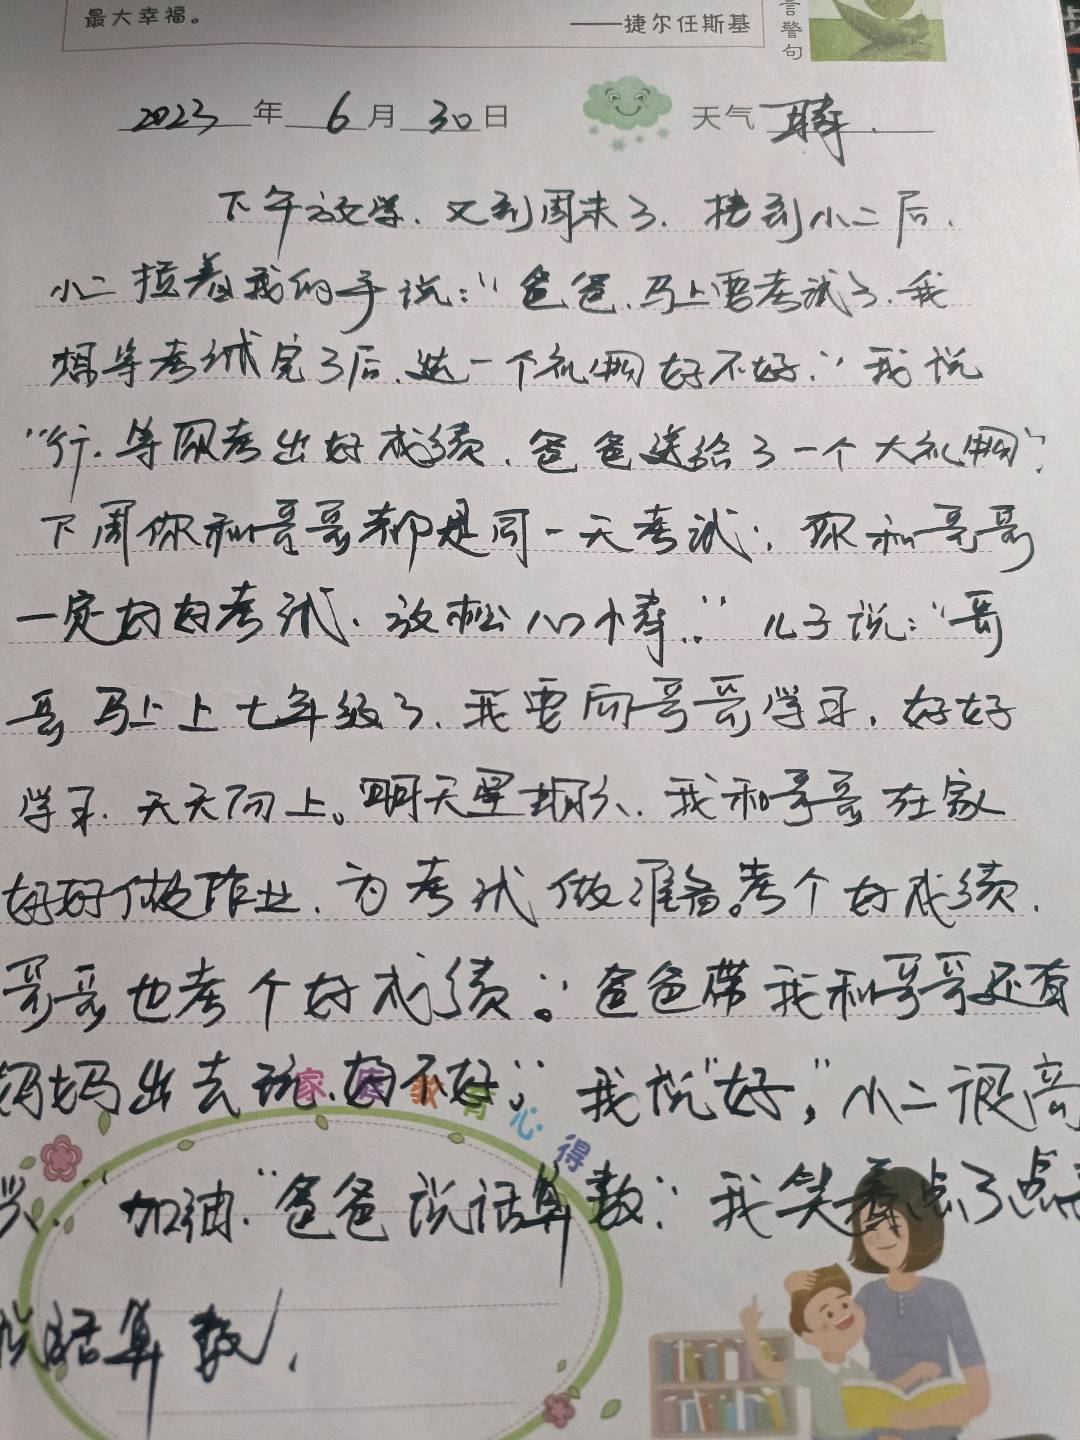 最大幸福。
——捷尔任斯基
言警句
2023年6月30日 天气 晴.
下午放学.又到周末了.接到小二后.
小二拉着我的手说:“爸爸.马上要考试了.我
想等考试完了后.送一个礼物好不好.”我说
“行.等你考出好成绩.爸爸送给了一个大礼物”.
下周你和哥哥都是同一天考试.你和哥哥
一定好好考试.放松心情..”儿子说:“哥
哥马上上七年级了.我要向哥哥学习.好好
学习.天天向上。明天星期六.我和哥哥在家
好好做作业.为考试做准备。考个好成绩.
哥哥也考个好成绩。”爸爸带我和哥哥还有
妈妈出去玩.好不好.”我说“好”,小二很高
兴.“加油.”爸爸说话算数”我笑着点了点
说话算数.
家庭教育心得